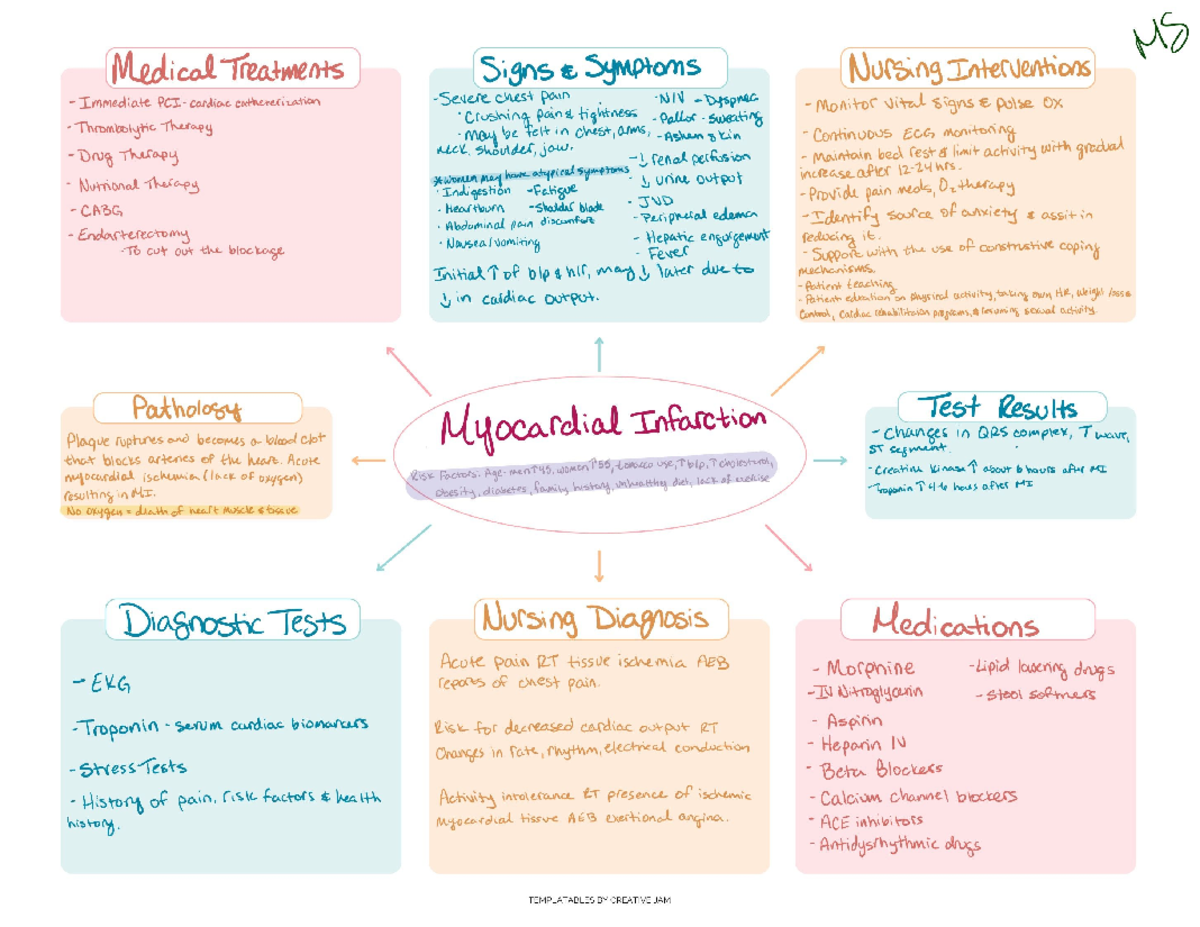 MS
Medical Treatments
- Immediate PCI - cardiac catheterization
- Thrombolytic Therapy
- Drug Therapy
- Nutrional Therapy
- CABG
- Endarterectomy
• To cut out the blockage
Signs & Symptoms
- Severe chest pain
• Crushing pain & tightness
• May be felt in chest, arms,
neck, shoulder, jaw.
*Women may have atypical symptoms
• Indigestion - Fatigue
• Heartburn - Shoulder blade
• Abdominal pain discomfort
• Nausea/vomiting
- N/V - Dyspnea
- Pallor - sweating
- Ashen skin
- ↓ renal perfusion
- ↓ urine output
- JVD
- Peripheral edema
- Hepatic engorgement
- Fever
Initial ↑ of b/p & h/r, may ↓ later due to
↓ in cardiac output.
Nursing Interventions
- Monitor vital signs & pulse ox
- Continuous ECG monitoring
- Maintain bed rest & limit activity with gradual
increase after 12-24 hrs.
- Provide pain meds, O2 therapy
- Identify source of anxiety & assit in
reducing it.
- Support with the use of constructive coping
mechanisms.
- Patient teaching
- Patient education on physical activity, taking own HR, weight loss &
control, cardiac rehabilitation programs, & resuming sexual activity.
Pathology
Plaque ruptures and becomes a blood clot
that blocks arteries of the heart. Acute
myocardial ischemia (lack of oxygen)
resulting in MI.
No oxygen = death of heart muscle & tissue
Myocardial Infarction
Risk Factors: Age-men ↑45, women ↑55, tobacco use, ↑ b/p, ↑ cholesterol,
obesity, diabetes, family history, unhealthy diet, lack of exercise
Test Results
- Changes in QRS complex, T wave,
ST segment.
- Creatine kinase ↑ about 6 hours after MI
- Troponin ↑ 4-6 hours after MI
Diagnostic Tests
- EKG
- Troponin - serum cardiac biomarkers
- Stress Tests
- History of pain, risk factors & health
history.
Nursing Diagnosis
Acute pain RT tissue ischemia AEB
reports of chest pain.
Risk for decreased cardiac output RT
Changes in rate, rhythm, electrical conduction
Activity intolerance RT presence of ischemic
Myocardial tissue AEB exertional angina.
Medications
- Morphine
- IV Nitroglycerin
- Aspirin
- Heparin IV
- Beta Blockers
- Calcium channel blockers
- ACE inhibitors
- Antidysrhythmic drugs
- Lipid lowering drugs
- Stool softners
TEMPLATABLES BY CREATIVE JAM